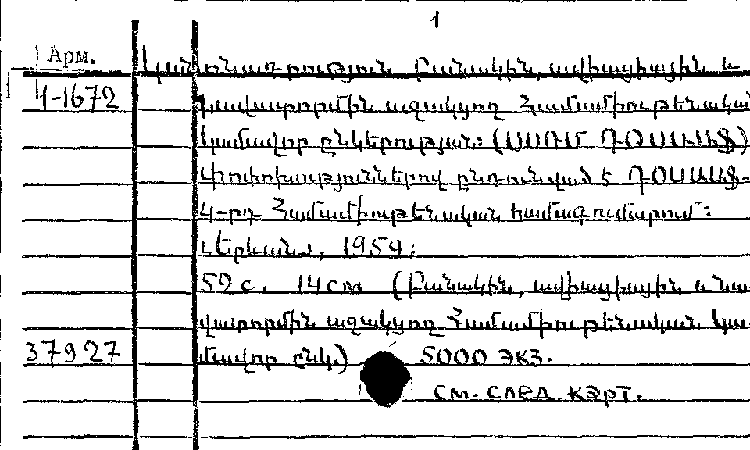 1
Арм.
Կանոնադրություն Բանակին, ավիացիային և
4-1672 նավատորմին աջակցող Համամիութենական
կամավոր ընկերության: (ՍՍՌՄ ԴՕՍԱԱՖ)
Փոփոխություններով ընդունված է ԴՕՍԱԱՖ-
4-րդ Համամիութենական համագումարում:
Երևան, 1954:
52 с. 14 см (Բանակին, ավիացիային և նա-
վատորմին աջակցող Համամիութենական կա-
37927 մավոր ընկ.) 5000 экз.
см. след. карт.